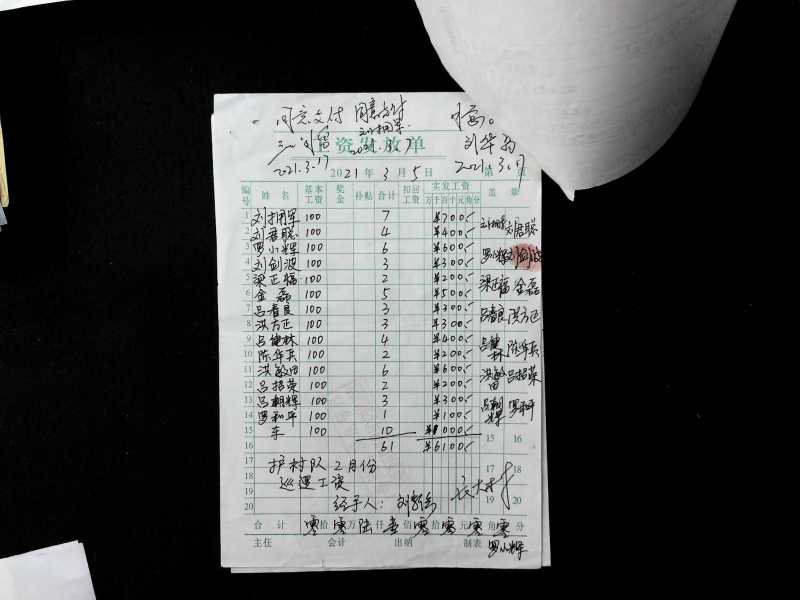 同意支付 同意支付 情况属实。
刘拥军 刘华为
2021.3.17 2021.3.17 2021.3.17
工资发放单
2021年3月5日 第 页
编号 姓名 基本工资 奖金 补贴 合计 扣回工资 实发工资 盖章
万 千 百 十 元 角 分
1 刘拥军 100 7 ¥700.- 刘拥军 刘君聪
2 刘君聪 100 4 ¥400.-
3 罗小辉 100 6 ¥600.- 罗小辉 刘剑波
4 刘剑波 100 3 ¥300.-
5 梁正福 100 2 ¥200.- 梁正福 金磊
6 金磊 100 5 ¥500.-
7 吕春良 100 3 ¥300.- 吕春良 洪方正
8 洪方正 100 3 ¥300.-
9 吕健林 100 4 ¥400.- 吕健林 陈华兵
10 陈华兵 100 2 ¥200.-
11 洪敏田 100 6 ¥600.- 洪敏田 吕招荣
12 吕招荣 100 2 ¥200.-
13 吕朝辉 100 3 ¥300.- 吕朝辉 罗和平
14 罗和平 100 1 ¥100.-
15 车 100 10 ¥1000.- 15 16
16 61 ¥6100.-
17 护村队2月份 17 18
18 巡逻工资
19 经手人: 19 20
20
合计 零拾零万陆仟壹佰零拾零元零角零分
主任 会计 出纳 制表 罗小辉